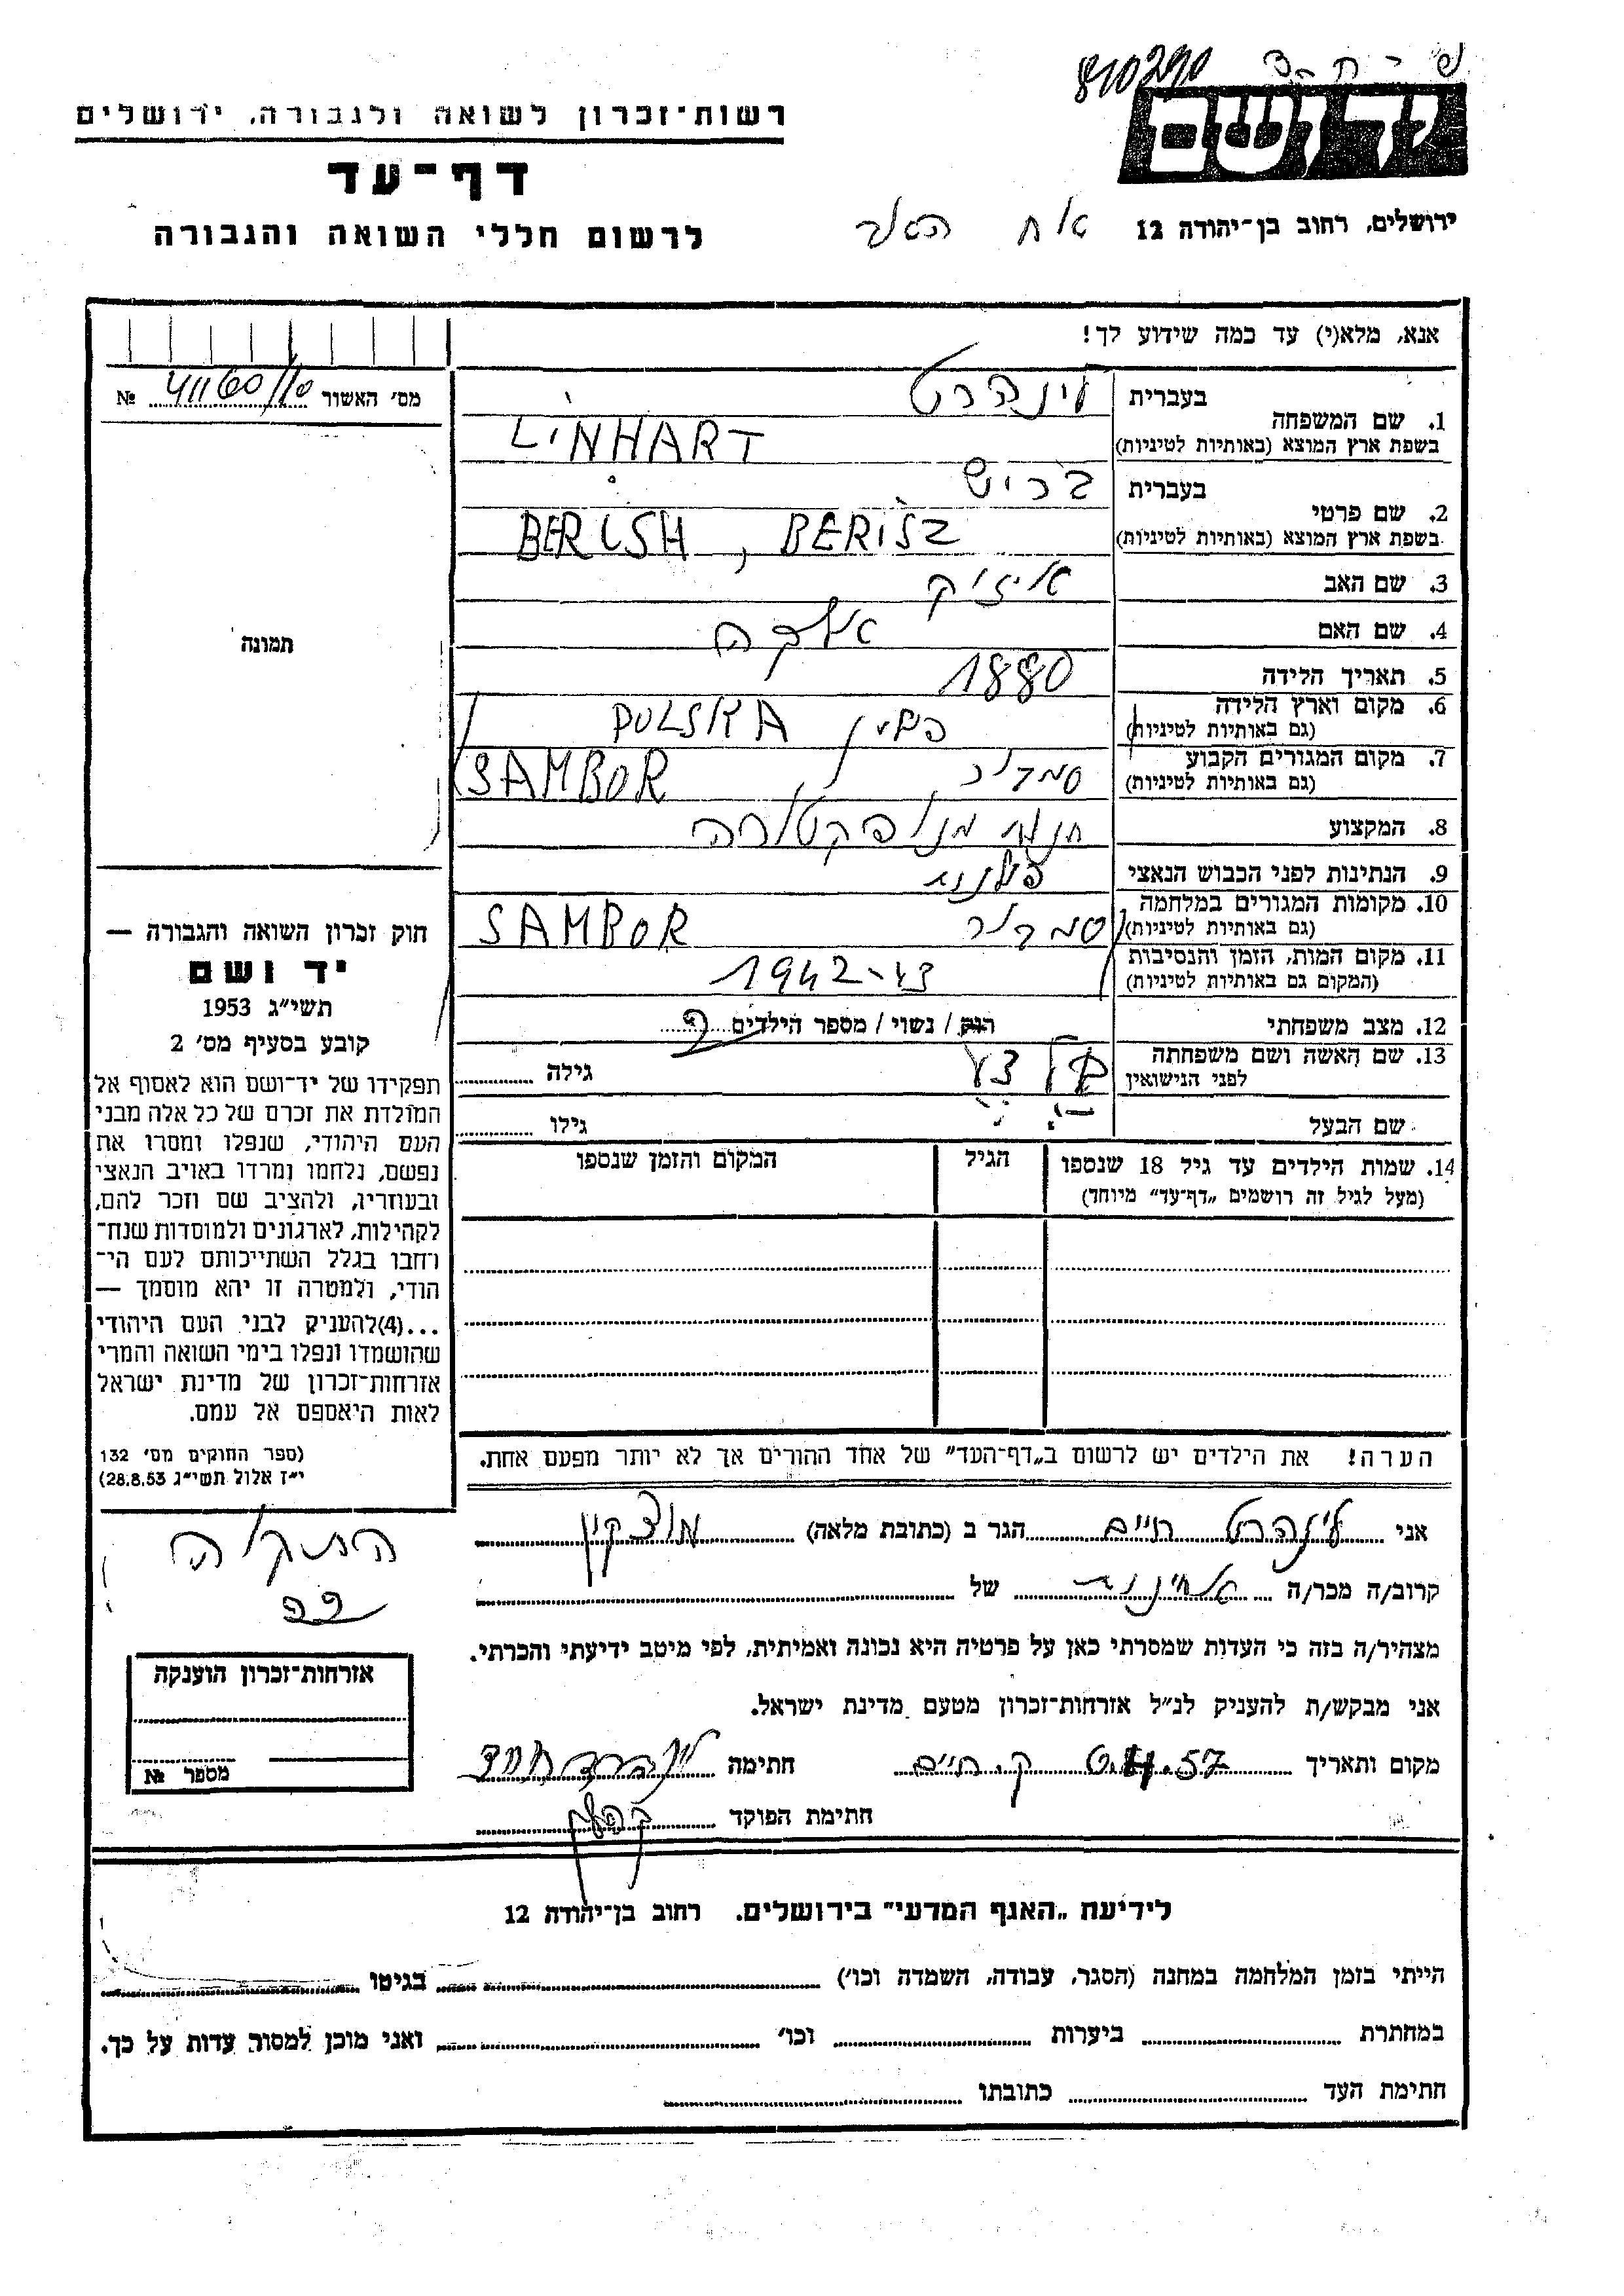 810290
יד ושם
רשות־זכרון לשואה ולגבורה, ירושלים
דף־עד
לרשום חללי השואה והגבורה
ירושלים, רחוב בן־יהודה 12
אח האב
אנא, מלא(י) עד כמה שידוע לך!
מס׳ האשור 41160/10 №
תמונה
1. שם המשפחה בעברית לינהרט
בשפת ארץ המוצא (באותיות לטיניות) LINHART
2. שם פרטי בעברית בריש
בשפת ארץ המוצא (באותיות לטיניות) BERISH, BERISZ
3. שם האב איזיק
4. שם האם
5. תאריך הלידה 1880
6. מקום וארץ הלידה פולין POLSKA
(גם באותיות לטיניות)
7. מקום המגורים הקבוע סמבור SAMBOR
(גם באותיות לטיניות)
8. המקצוע מנופקטורה
9. הנתינות לפני הכבוש הנאצי פולנית
10. מקומות המגורים במלחמה סמבור SAMBOR
(גם באותיות לטיניות)
11. מקום המות, הזמן והנסיבות 1942-43
(המקום גם באותיות לטיניות)
12. מצב משפחתי רוק / נשוי / מספר הילדים
13. שם האשה ושם משפחתה
לפני הנישואין
גילה
שם הבעל
גילו
14. שמות הילדים עד גיל 18 שנספו
(מעל לגיל זה רושמים „דף־עד” מיוחד)
הגיל
המקום והזמן שנספו
חוק זכרון השואה והגבורה —
יד ושם
תשי״ג 1953
קובע בסעיף מס׳ 2
תפקידו של יד־ושם הוא לאסוף אל
המולדת את זכרם של כל אלה מבני
העם היהודי, שנפלו ומסרו את
נפשם, נלחמו ומרדו באויב הנאצי
ובעוזריו, ולהציב שם וזכר להם,
לקהילות, לארגונים ולמוסדות שנח־
רחבו בגלל השתייכותם לעם הי־
הודי, ולמטרה זו יהא מוסמך —
...(4)להעניק לבני העם היהודי
שהושמדו ונפלו בימי השואה והמרי
אזרחות־זכרון של מדינת ישראל
לאות היאספם אל עמם.
(ספר החוקים מס׳ 132
י״ז אלול תשי״ג 28.8.53)
הערה! את הילדים יש לרשום ב„דף־העד” של אחד ההורים אך לא יותר מפעם אחת.
אני לינהרט חיים הגר ב (כתובת מלאה) מוצקין
התקוה
22
קרוב/ה מכר/ה של
מצהיר/ה בזה כי העדות שמסרתי כאן על פרטיה היא נכונה ואמיתית, לפי מיטב ידיעתי והכרתי.
אני מבקש/ת להעניק לנ״ל אזרחות־זכרון מטעם מדינת ישראל.
מקום ותאריך ק. חיים חתימה
חתימת הפוקד
אזרחות־זכרון הוענקה
מספר №
לידיעת „האגף המדעי” בירושלים. רחוב בן־יהודה 12
הייתי בזמן המלחמה במחנה (הסגר, עבודה, השמדה וכו׳) בגיטו
במחתרת ביערות וכו׳ ואני מוכן למסור עדות על כך.
חתימת העד כתובתו